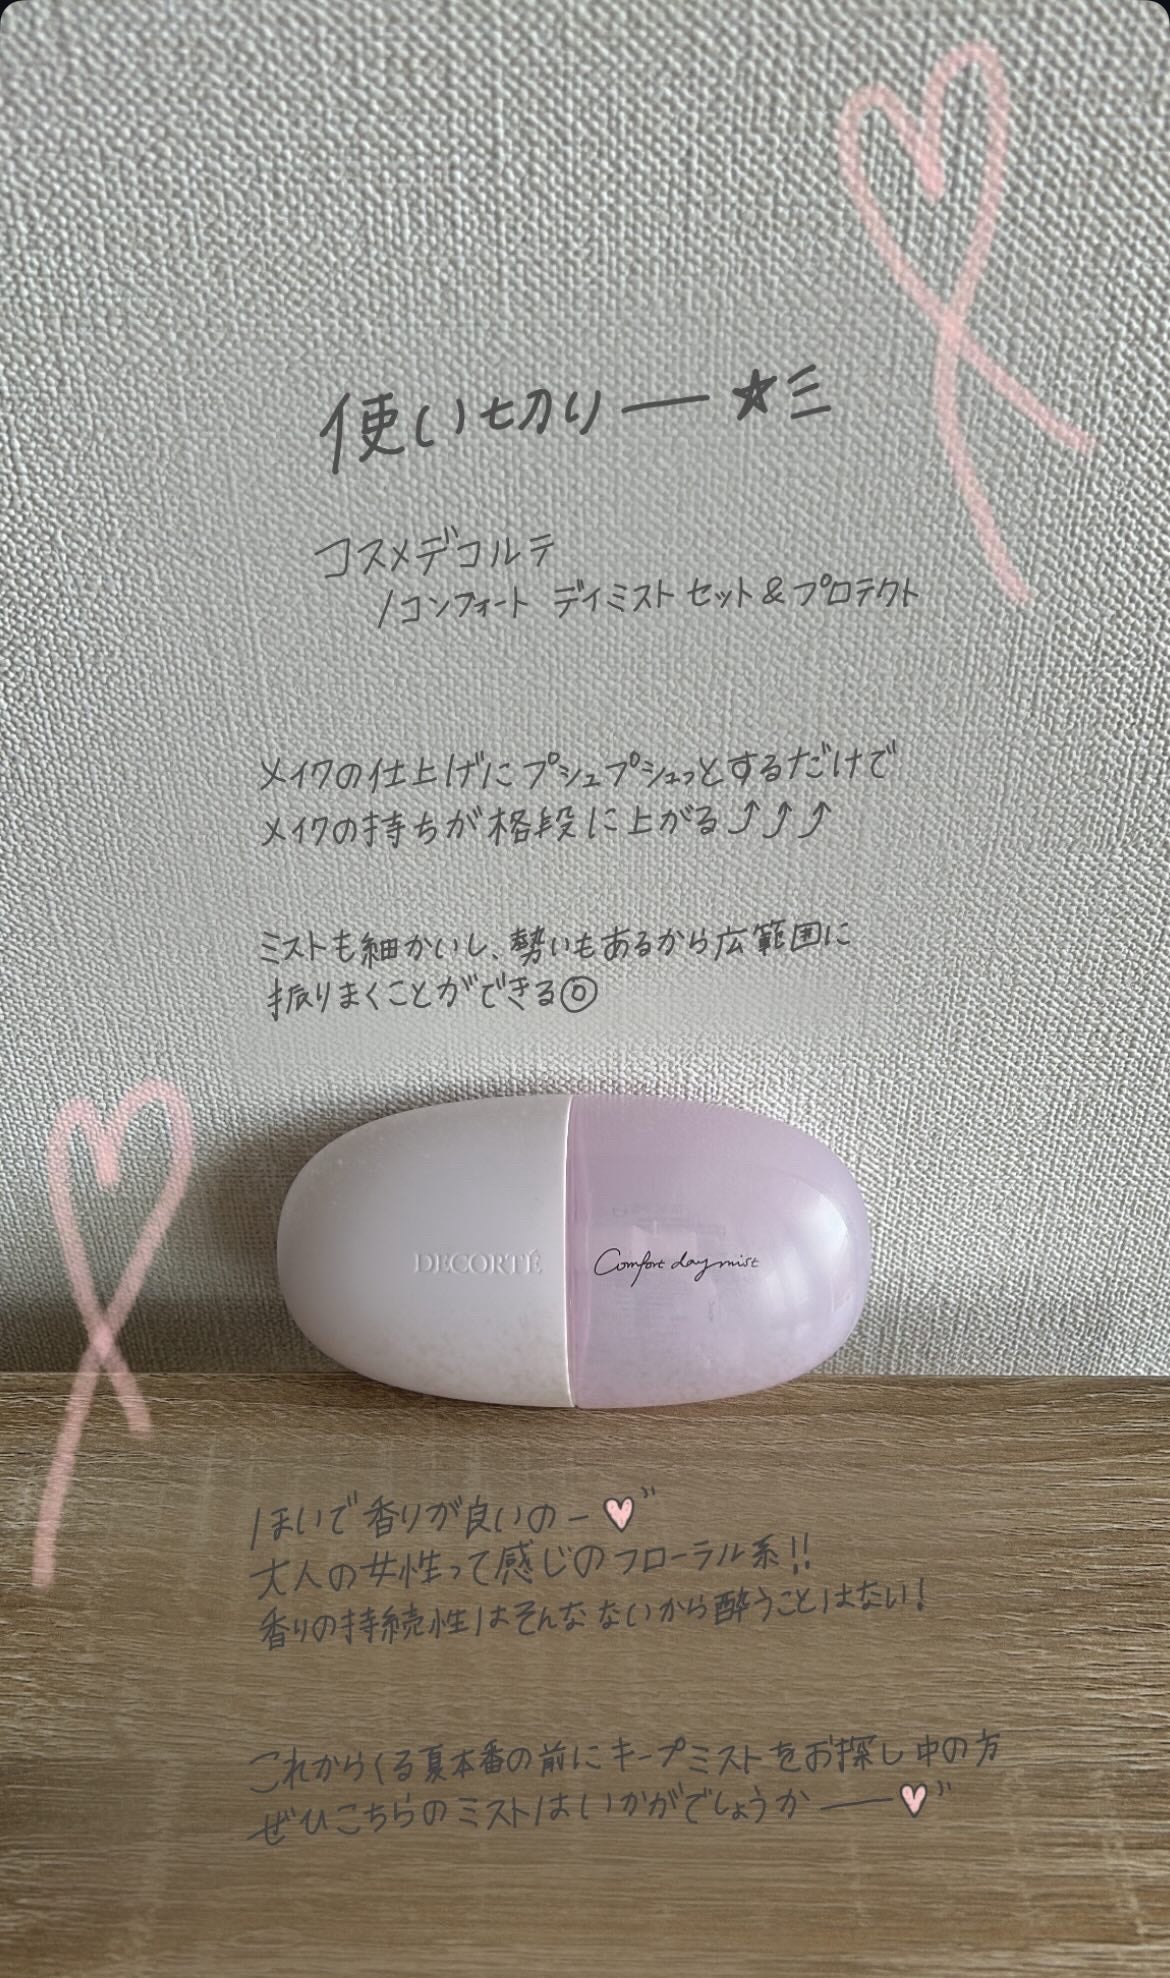 使い切りー★彡
コスメデコルテ
/コンフォート デイミスト セット&プロテクト
メイクの仕上げにプシュプシュっとするだけで
メイクの持ちが格段に上がる⤴⤴⤴
ミストも細かいし、勢いもあるから広範囲に
振りまくことができる◎
DECORTÉ
Comfort day mist
ほいで香りが良いのー♥”
大人の女性って感じのフローラル系!!
香りの持続性はそんなないから酔うことはない!
これからくる夏本番の前にキープミストをお探し中の方
ぜひこちらのミストはいかがでしょうかー♥”